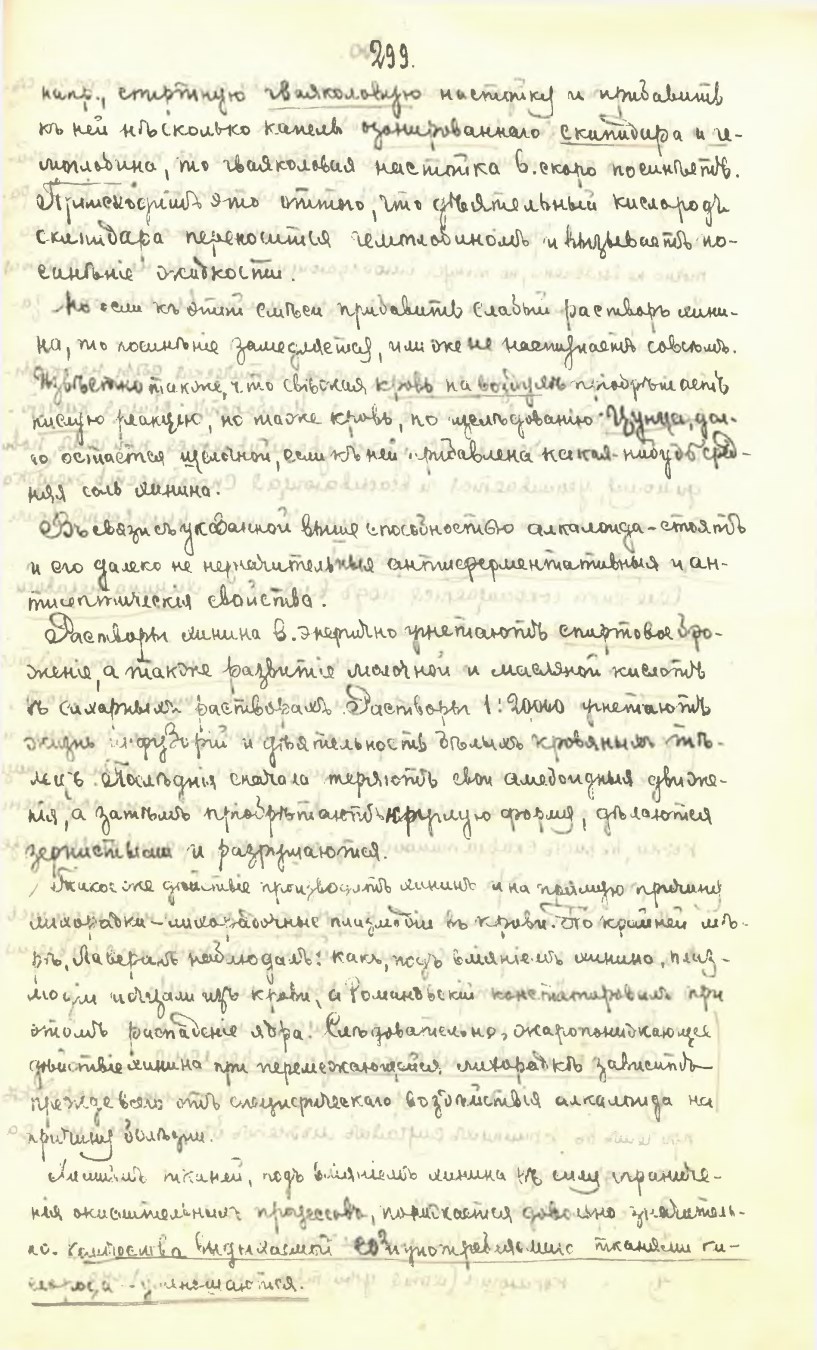 299.
напр., спиртную гваяколовую настойку и прибавить
къ ней нѣсколько капель озонированнаго скипидара и ге-
моглобина, то гваяколовая настойка в. скоро посинѣетъ.
Происходитъ это оттого, что дѣятельный кислородъ
скипидара переносится гемоглобиномъ и вызываетъ по-
синѣніе жидкости.
Но если къ этой смѣси прибавить слабый растворъ хини-
на, то посинѣніе замедляется, или же не наступаетъ совсѣмъ.
Извѣстно также, что свѣжая кровь на воздухѣ пріобрѣтаетъ
кислую реакцію, но таже кровь, по изслѣдованію Цунца, дол-
го остается щелочной, если къ ней прибавлена какая-нибудь сред-
няя соль хинина.
Въ связи съ указанной выше способностью алкалоида - стоятъ
и его далеко не незначительныя антиферментативныя и ан-
тисептическія свойства.
Растворы хинина в. энергично угнетаютъ спиртовое бро-
женіе, а также развитіе молочной и масляной кислотъ
въ сахарныхъ растворахъ. Растворы 1:20000 угнетаютъ
жизнь инфузорій и дѣятельность бѣлыхъ кровяныхъ тѣ-
лецъ. Послѣднія сначала теряютъ свои амебоидныя движе-
нія, а затѣмъ пріобрѣтаютъ круглую форму, дѣлаются
зернистыми и разрушаются.
Такое же дѣйствіе производитъ хининъ и на прямую причину
лихорадки - лихорадочные плазмодіи въ крови. По крайней мѣ-
рѣ, Лаверанъ наблюдалъ: какъ, подъ вліяніемъ хинина, плаз-
модіи исчезали изъ крови, а Романовскій констатировалъ при
этомъ распаденіе ядра. Слѣдовательно, жаропонижающее
дѣйствіе хинина при перемежающейся лихорадкѣ зависитъ
прежде всего отъ специфическаго воздѣйствія алкалоида на
причину болѣзни.
тканей, подъ вліяніемъ хинина въ силу ограниче-
нія окислительныхъ процессовъ, понижается довольно значитель-
но. Количества выдыхаемой CO² и употребляемаго тканями ки-
слорода - уменьшаются.